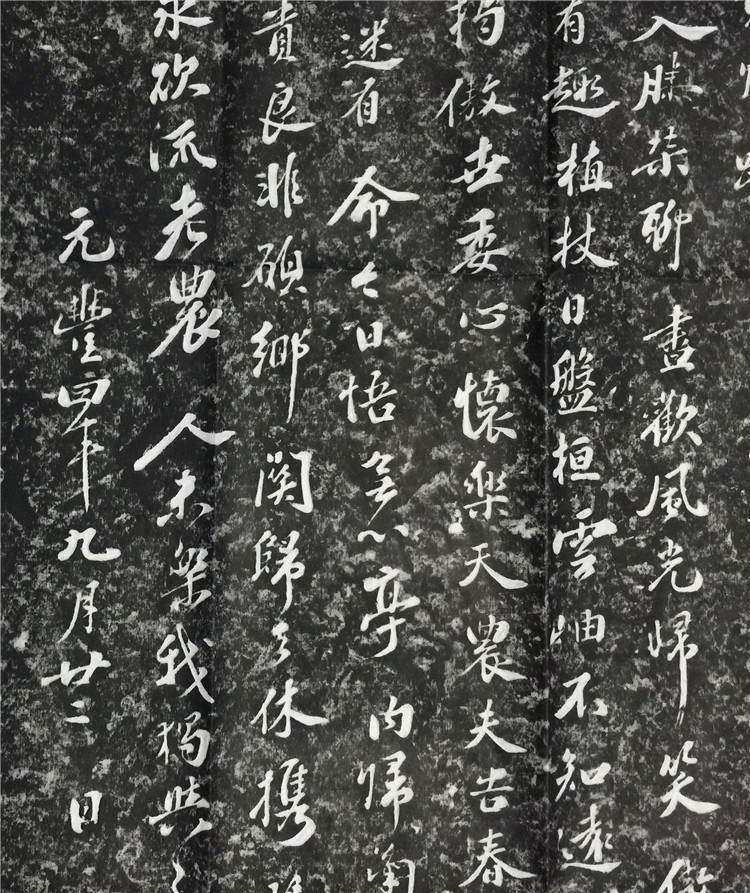 入膝琴聊歡風光歸笑傲
有趣植杖日盤桓雲岫不知遠
傲世委心懷樂天農夫告春
迷有命今日悟無心亭內歸菊
貴良非碩鄉關歸去休攜
欲流老農人未樂我獨與之
元豐四年九月廿二日